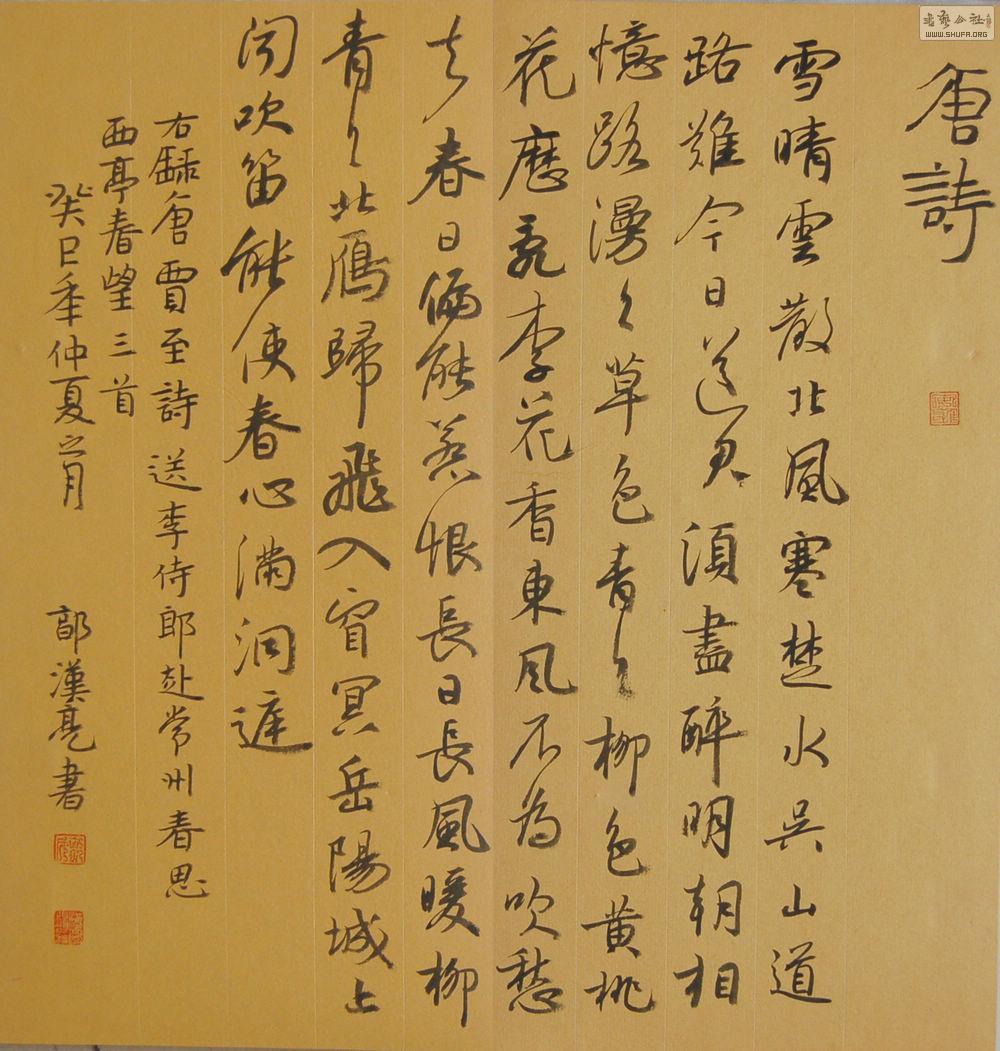 唐詩
雪晴雲散北風寒楚水吳山道
路難今日送君須盡醉明朝相
憶路漫々草色青々柳色黄桃
花歷亂李花香東風不為吹愁
去春日偏能惹恨長日長風暖柳
青々北鴈歸飛入窅冥岳陽城上
聞吹笛能使春心滿洞庭
右録唐賈至詩送李侍郎赴常州春思
西亭春望三首
癸巳年仲夏之月 郭漢亮書
書藝公社
WWW.SHUFA.ORG